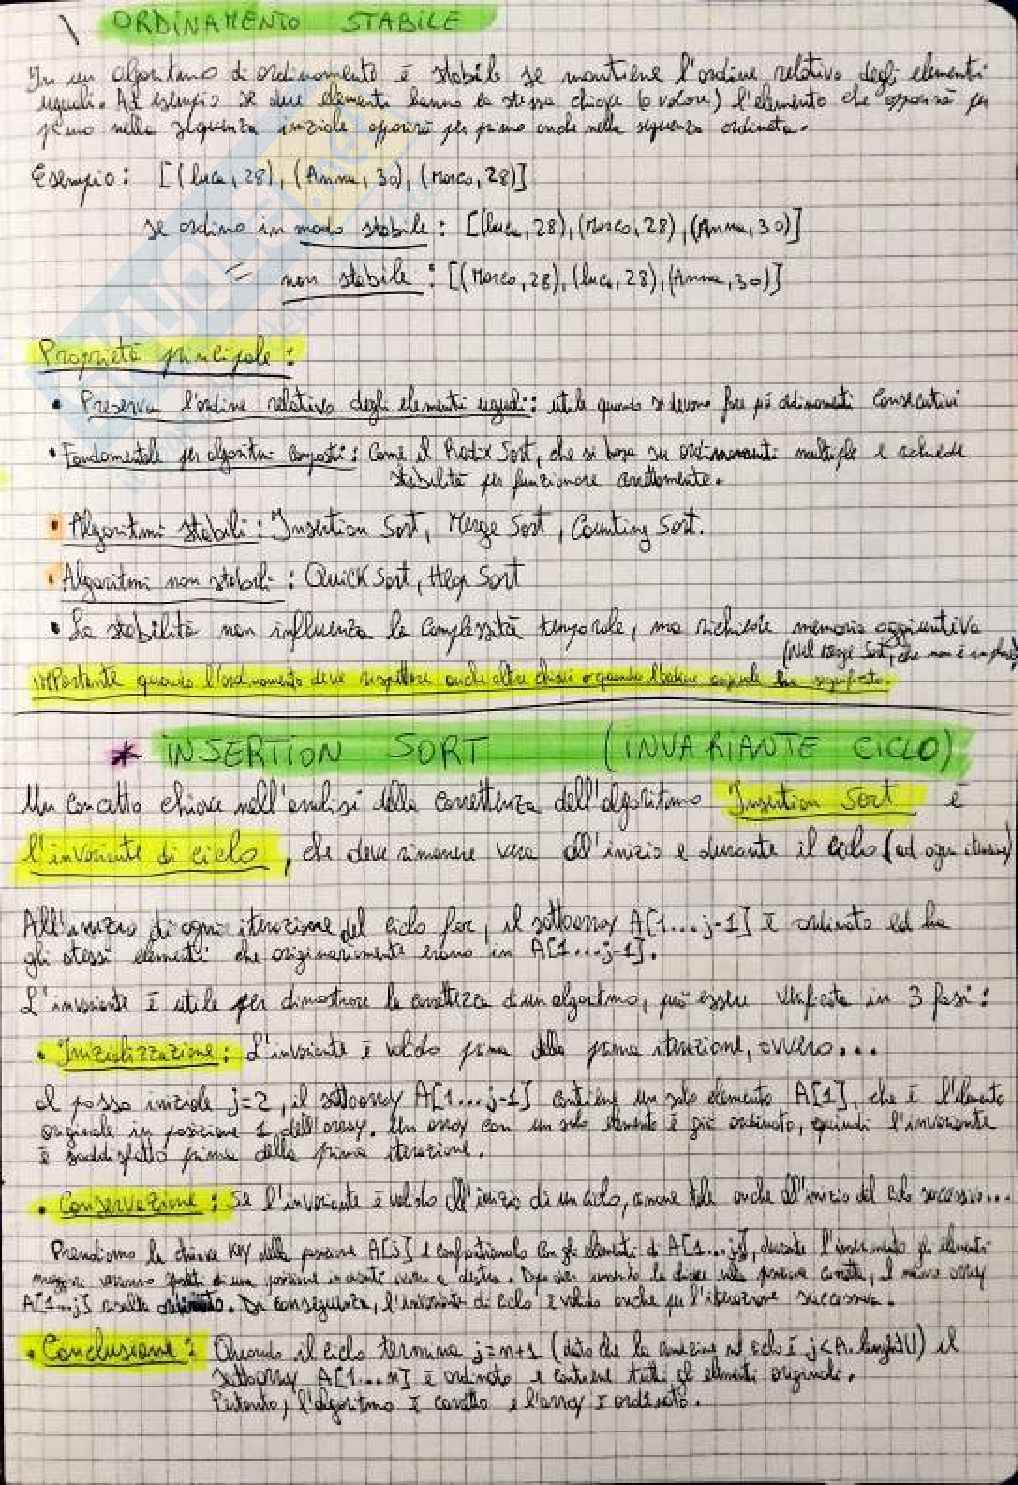 ORDINAMENTO STABILE
In un algoritmo di ordinamento è stabile se mantiene l'ordine relativo degli elementi
uguali. Ad esempio se due elementi hanno la stessa chiave (o valore) l'elemento che apparirà per
primo nella sequenza iniziale apparirà per primo anche nella sequenza ordinata.
Esempio: [(luca, 28), (Anna, 30), (Marco, 28)]
se ordino in modo stabile: [(luca, 28), (Marco, 28), (Anna, 30)]
= non stabile: [(Marco, 28), (luca, 28), (Anna, 30)]
Proprietà principale:
• Preserva l'ordine relativo degli elementi uguali: utile quando si devono fare più ordinamenti consecutivi
• Fondamentale per algoritmi composti: Come il Radix Sort, che si basa su ordinamenti multiple e richiede
stabilità per funzionare correttamente.
• Algoritmi stabili: Insertion Sort, Merge Sort, Counting Sort.
• Algoritmi non stabili: Quick Sort, Heap Sort
• La stabilità non influenza la complessità temporale, ma richiede memoria aggiuntiva
(Nel Merge Sort, che non è in place)
importante quando l'ordinamento deve rispettare anche altre chiavi o quando l'ordine originale ha significato.
* INSERTION SORT (INVARIANTE CICLO)
Un concetto chiave nell'analisi della correttezza dell'algoritmo Insertion Sort è
l'invariante di ciclo, che deve rimanere vera all'inizio e durante il ciclo (ad ogni iterazione)
All'inizio di ogni iterazione del ciclo for, il sottoarray A[1...j-1] è ordinato ed ha
gli stessi elementi che originariamente erano in A[1...j-1].
L'invariante è utile per dimostrare la correttezza d'un algoritmo, può essere verificata in 3 fasi:
• Inizializzazione: L'invariante è valido prima della prima iterazione, ovvero...
al passo iniziale j=2, il sottoarray A[1...j-1] contiene un solo elemento A[1], che è l'elemento
originale in posizione 1 dell'array. Un array con un solo elemento è già ordinato, quindi l'invariante
è soddisfatto prima della prima iterazione.
• Conservazione: Se l'invariante è valido all'inizio di un ciclo, rimane tale anche all'inizio del ciclo successivo...
Prendiamo la chiave key della posizione A[j] e confrontiamola con gli elementi di A[1...j-1], durante l'inserimento gli elementi
maggiori verranno spostati di una posizione in avanti verso a destra. Dopo aver inserito la chiave nella posizione corretta, il nuovo array
A[1...j] risulta ordinato. Di conseguenza, l'invariante di ciclo è valido anche per l'iterazione successiva.
• Conclusione: Quando il ciclo termina j=n+1 (dato che la condizione nel ciclo è j<A.lenght()) il
sottoarray A[1...n] è ordinato e contiene tutti gli elementi originali.
Pertanto, l'algoritmo è corretto e l'array è ordinato.